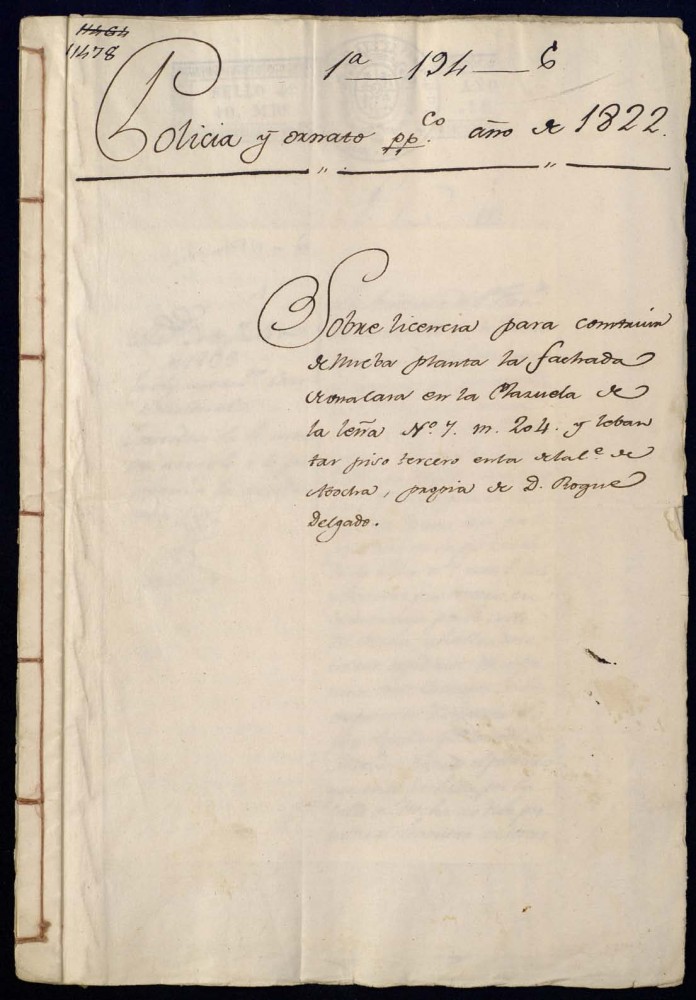 11464
11478
1ª — 194 — 6
Policia y ornato pp.ᶜᵒ año de 1822.
Sobre licencia para construir
de Nueba planta la fachada
de una casa en la Plazuela de
la leña Nº. 7. m. 204. y leban
tar piso tercero en la de la l.ᵉ de
Atocha, propia de D. Roque
Delgado.